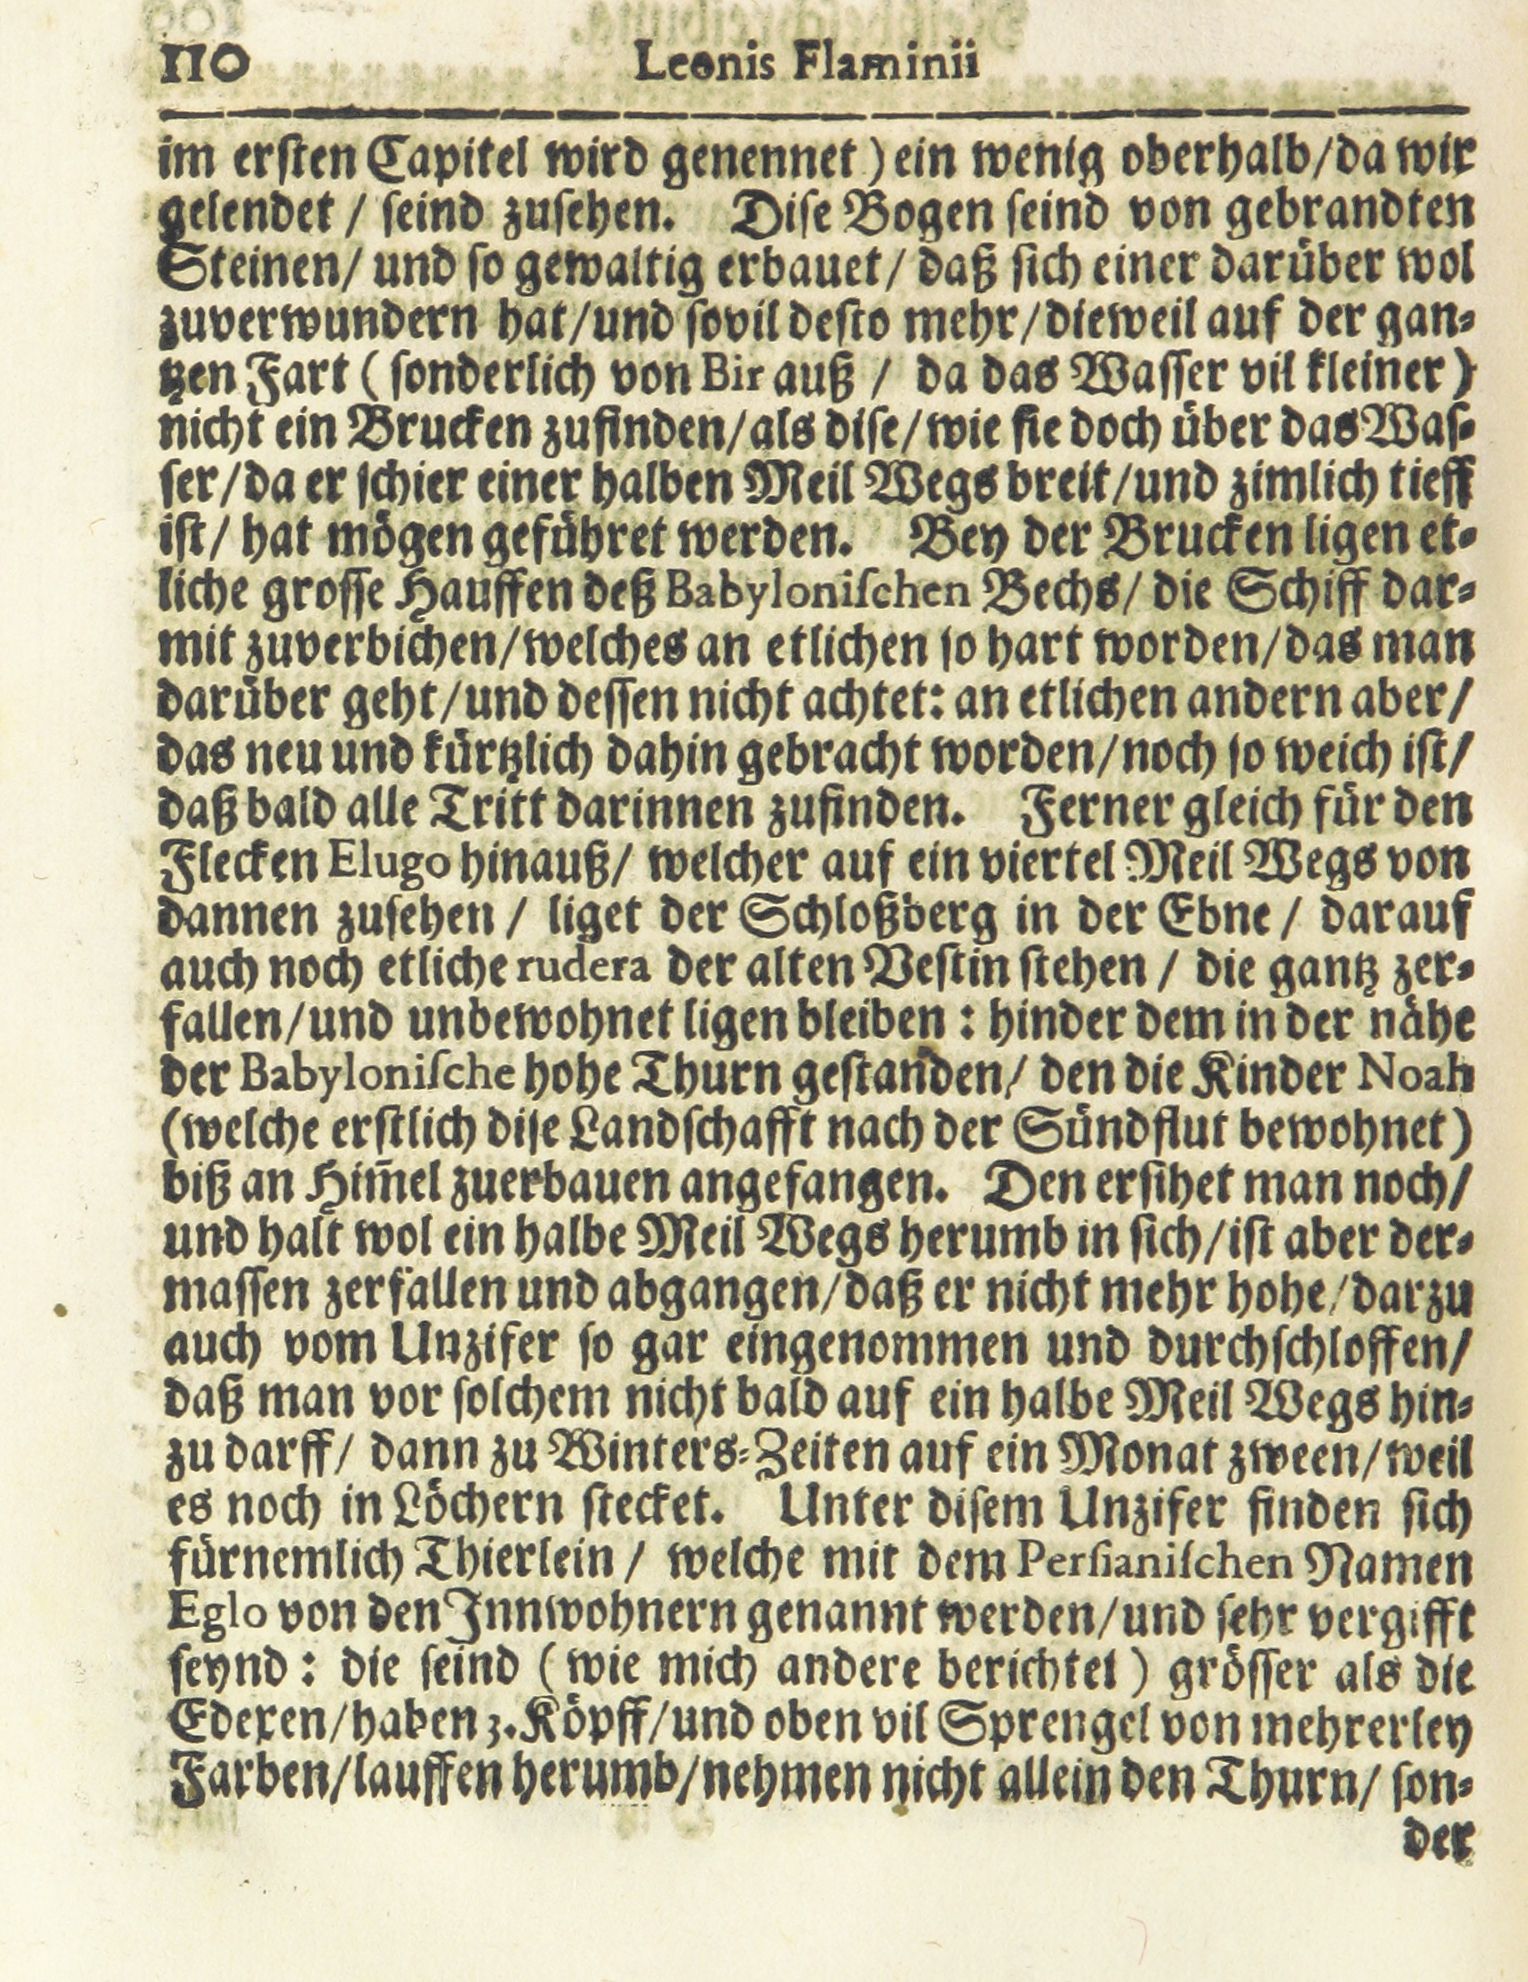 110 Leonis Flaminii
im ersten Capitel wird genennet) ein wenig oberhalb/da wir
gelendet / seind zusehen. Dise Bogen seind von gebrandten
Steinen/ und so gewaltig erbauet/ daß sich einer darüber wol
zuverwundern hat/und sovil desto mehr/dieweil auf der gan-
tzen Fart ( sonderlich von Bir auß / da das Wasser vil kleiner)
nicht ein Brucken zufinden/als dise/wie sie doch über das Was-
ser/da er schier einer halben Meil Wegs breit/und zimlich tieff
ist/ hat mögen geführet werden. Bey der Brucken ligen et-
liche grosse Hauffen deß Babylonischen Bechs/ die Schiff dar-
mit zuverbichen/welches an etlichen so hart worden/das man
darüber geht/und dessen nicht achtet: an etlichen andern aber/
das neu und kürtzlich dahin gebracht worden/noch so weich ist/
daß bald alle Tritt darinnen zufinden. Ferner gleich für den
Flecken Elugo hinauß/ welcher auf ein viertel Meil Wegs von
dannen zusehen / liget der Schloßberg in der Ebne / darauf
auch noch etliche rudera der alten Vestin stehen / die gantz zer-
fallen/und unbewohnet ligen bleiben : hinder dem in der nähe
der Babylonische hohe Thurn gestanden/ den die Kinder Noah
(welche erstlich dise Landschafft nach der Sündflut bewohnet)
biß an Him̄el zuerbauen angefangen. Den ersihet man noch/
und halt wol ein halbe Meil Wegs herumb in sich/ist aber der-
massen zerfallen und abgangen/daß er nicht mehr hohe/darzu
auch vom Unzifer so gar eingenommen und durchschloffen/
daß man vor solchem nicht bald auf ein halbe Meil Wegs hin-
zu darff/ dann zu Winters-Zeiten auf ein Monat zween/weil
es noch in Löchern stecket. Unter disem Unzifer finden sich
fürnemlich Thierlein / welche mit dem Persianischen Namen
Eglo von den Innwohnern genannt werden/und sehr vergifft
seynd : die seind ( wie mich andere berichtet ) grösser als die
Ederen/haben 3. Köpff/und oben vil Sprengel von mehrerley
Farben/lauffen herumb/nehmen nicht allein den Thurn/ son-
der